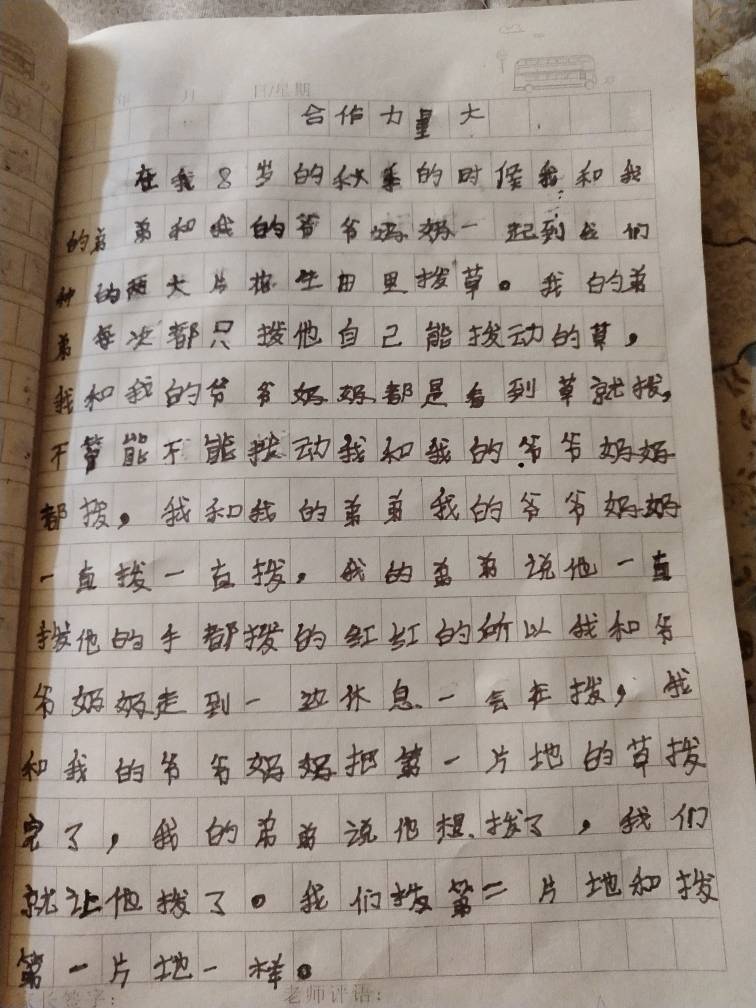 年 月 日/星期
合作力量大
在我8岁的秋季的时候我和我
的弟弟和我的爷爷妈妈一起到我们
种的两大片花生田里拨草。我的弟
弟每次都只拨他自己能拨动的草,
我和我的爷爷妈妈都是看到草就拨,
不管能不能拨动我和我的爷爷妈妈
都拨,我和我的弟弟我的爷爷妈妈
一直拨一直拨,我的弟弟说他一直
拨他的手都拨的红红的所以我和爷
爷妈妈走到一边休息一会在拨,我
和我的爷爷妈妈把第一片地的草拨
完了,我的弟弟说他想拨了,我们
就让他拨了。我们拨第二片地和拨
第一片地一样。
家长签字: 老师评语: